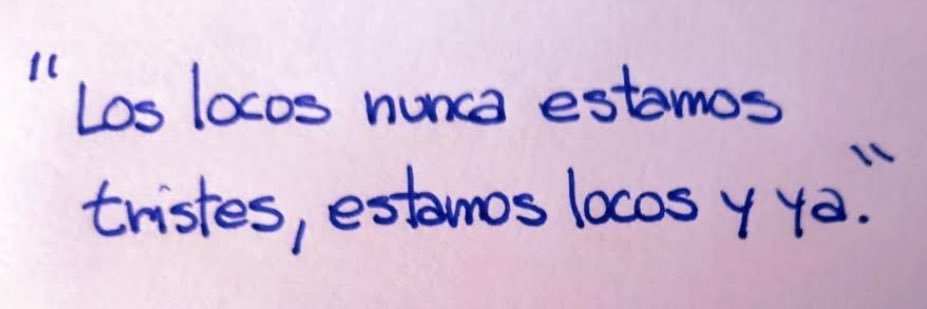 "Los locos nunca estamos
tristes, estamos locos y ya."